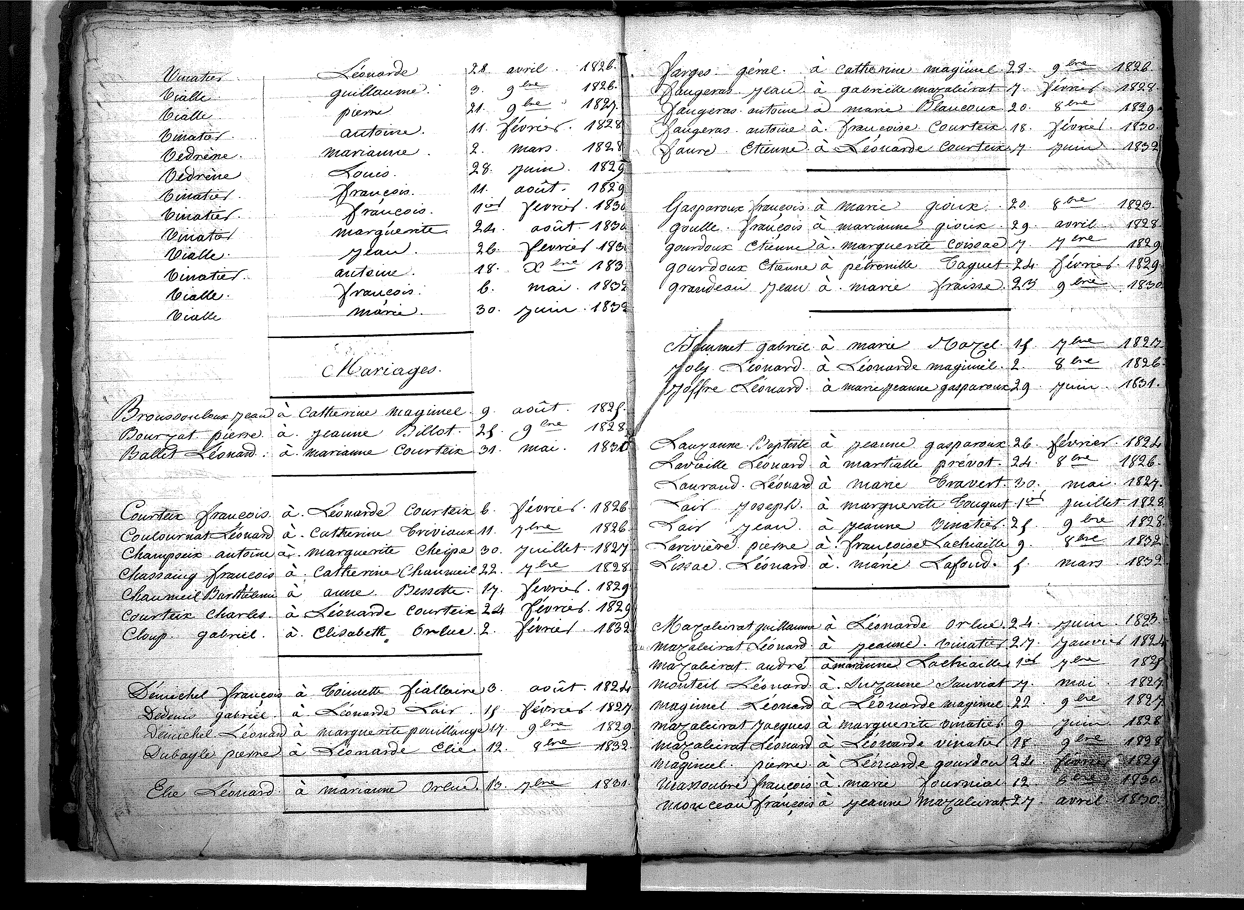 Vinatier Léonarde 28. avril. 1826.
Vialle. guillaume. 3. 9bre 1826.
Vialle pierre 21. 9bre 1827.
Vinatier antoine. 11. février. 1828.
Vedrène. marianne. 2. mars. 1828
Vedrène Louis. 28. juin. 1829
Vinatier françois. 11. août. 1829
Vinatier. françois. 1er février. 1830
Vinatier marguerite 24. août. 1830
Vialle. jean. 26. février 183
Vinatier. antoine. 18. Xbre 183
Vialle. françois. 6. mai. 1832
Vialle marie. 30. juin. 1832
Mariages.
Broussouloux jean à Catherine maginel. 9. août. 1825.
Bourzat pierre à jeanne Billot. 25. 9bre 1828.
Ballet Léonard. à marianne Courteix. 31. mai. 1830
Courteix françois à Léonarde Courteix 6. février. 1826
Coulournat Léonard à Catherine Trivioux 11. 7bre 1826.
Champeix antoine à marguerite Cheipe 30. juillet. 1827
Chassaing françois à Catherine Chaumeil 22. 7bre 1828.
Chaumeil Barthélemi à anne Bessette. 17. février. 1829
Courteix Charles. à Léonarde Courteix 24 février. 1829
Cloup. gabriel. à Elisabeth Orluc. 2. février. 1832
Démichel françois à Toinette fiallaire 3. août. 1824
Dedenis gabriel. à Léonarde Lair. 15 février. 1827.
Démichel Léonard à marguerite pouillange 17. 9bre 1829.
Dubayle pierre à Léonarde Elie 12. 8bre 1832.
Elie Léonard à marianne Orluc. 13. 7bre 1831.
farges géral. à Catherine maginel 28. 9bre 1826
faugeras jean à gabrielle mazaleirat 7. février. 1828.
faugeras antoine à marie Blancoux 20. 8bre 1829.
faugeras. antoine à françoise Courteix 18. février. 1830.
faure Etienne à Léonarde Courteix 7 juin 1832
Gasparoux françois à marie gioux. 20. 8bre 1823.
goulle. françois à marianne gioux. 29. avril. 1828.
gourdoux Etienne à marguerite Coissac 7. 7bre 1829
gourdoux Etienne à pétronille Taguet. 24. février. 1829.
grandeau jean à marie fraisse. 23 9bre 1830.
gabriel à marie Mazel 15 7bre 1827.
Joly Léonard. à Léonarde maginel. 2. 8bre 1826.
Joffre Léonard. à marie jeanne gasparoux 29. juin. 1831.
Lauzanne Baptiste à jeanne gasparoux 26. février. 1824
Laviaille Léonard à martialle prévot. 24. 8bre 1826.
Lauraud. Léonard à marie Travert. 30. mai. 1827.
Lair joseph à marguerite Touquet 1er juillet 1828
Lair jean. à jeanne Vinatier 25. 9bre 1828.
Larivière pierre à françoise Lachiaille 9. 8bre 1832.
Lissac. Léonard à marie Lafond. 5 mars. 1832.
Mazaleirat guillaume à Léonarde Orluc 24. juin. 1823.
mazaleirat Léonard à jeanne. vinatier 27. janvier 1824
mazaleirat. andré à marianne Lachiaille 1er 7bre 1825
monteil Léonard à Suzanne Sauviat 7. mai. 1827.
maginel Léonard à Léonarde maginel 22. 9bre 1827
mazaleirat jacques à marguerite vinatier 9 juin 1828
mazaleirat Léonard à Léonarde vinatier 18 9bre 1828
maginel. pierre à Léonarde gourdou 24 février 1829
massoubre françois à marie fournial 12 1830.
monceau françois à jeanne Mazaleirat 27 avril 1830.